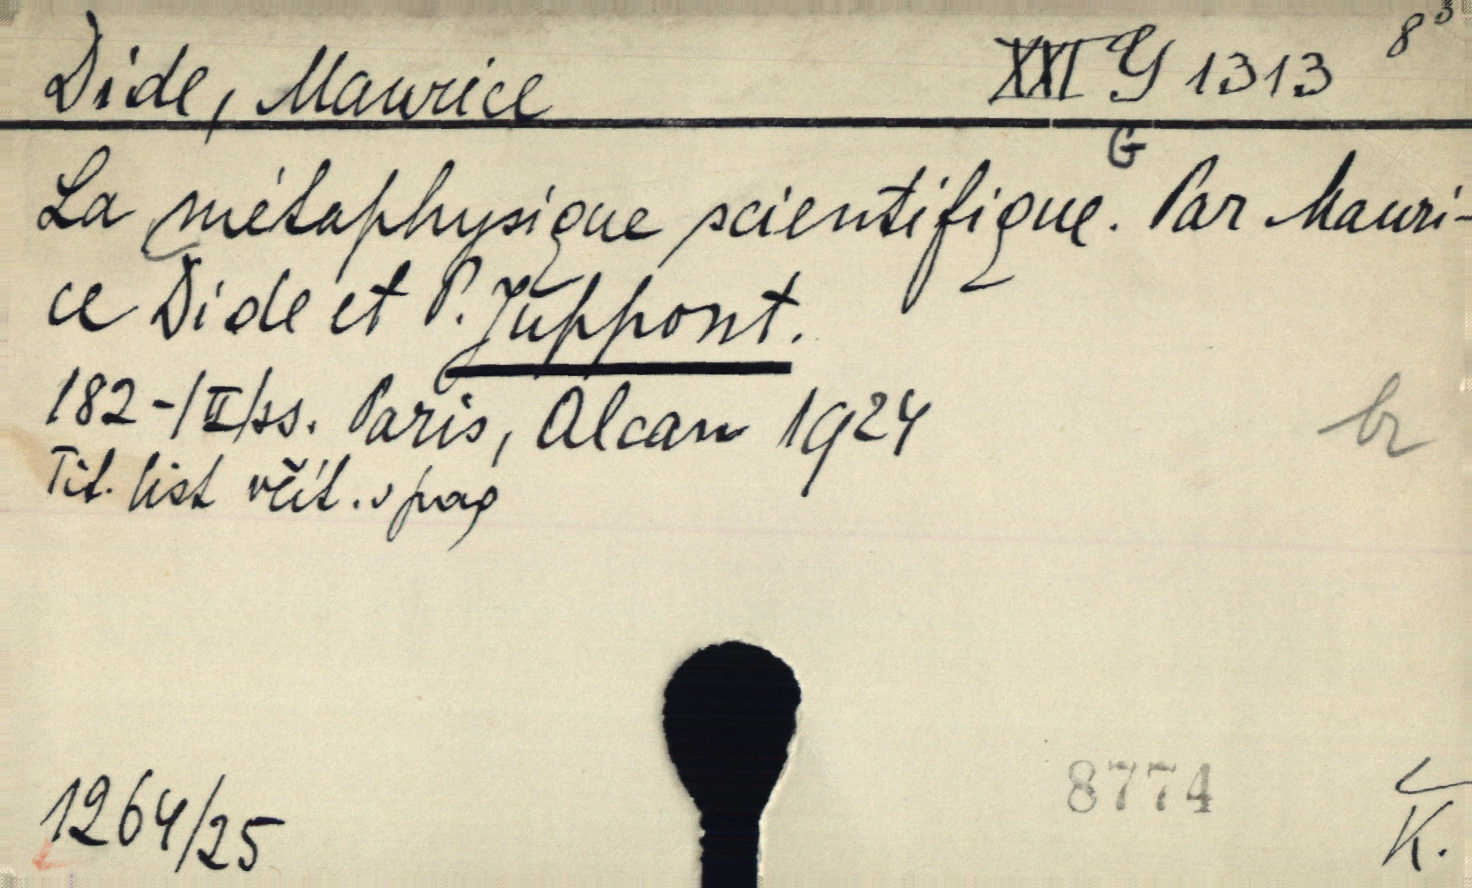 Dide, Maurice XXI G 1313 8°
G
La métaphysique scientifique. Par Mauri-
ce Dide et P. Juppont.
182-/II/ss. Paris, Alcan 1924
br
Tit. list včít. v pag
8774
1264/25 K.